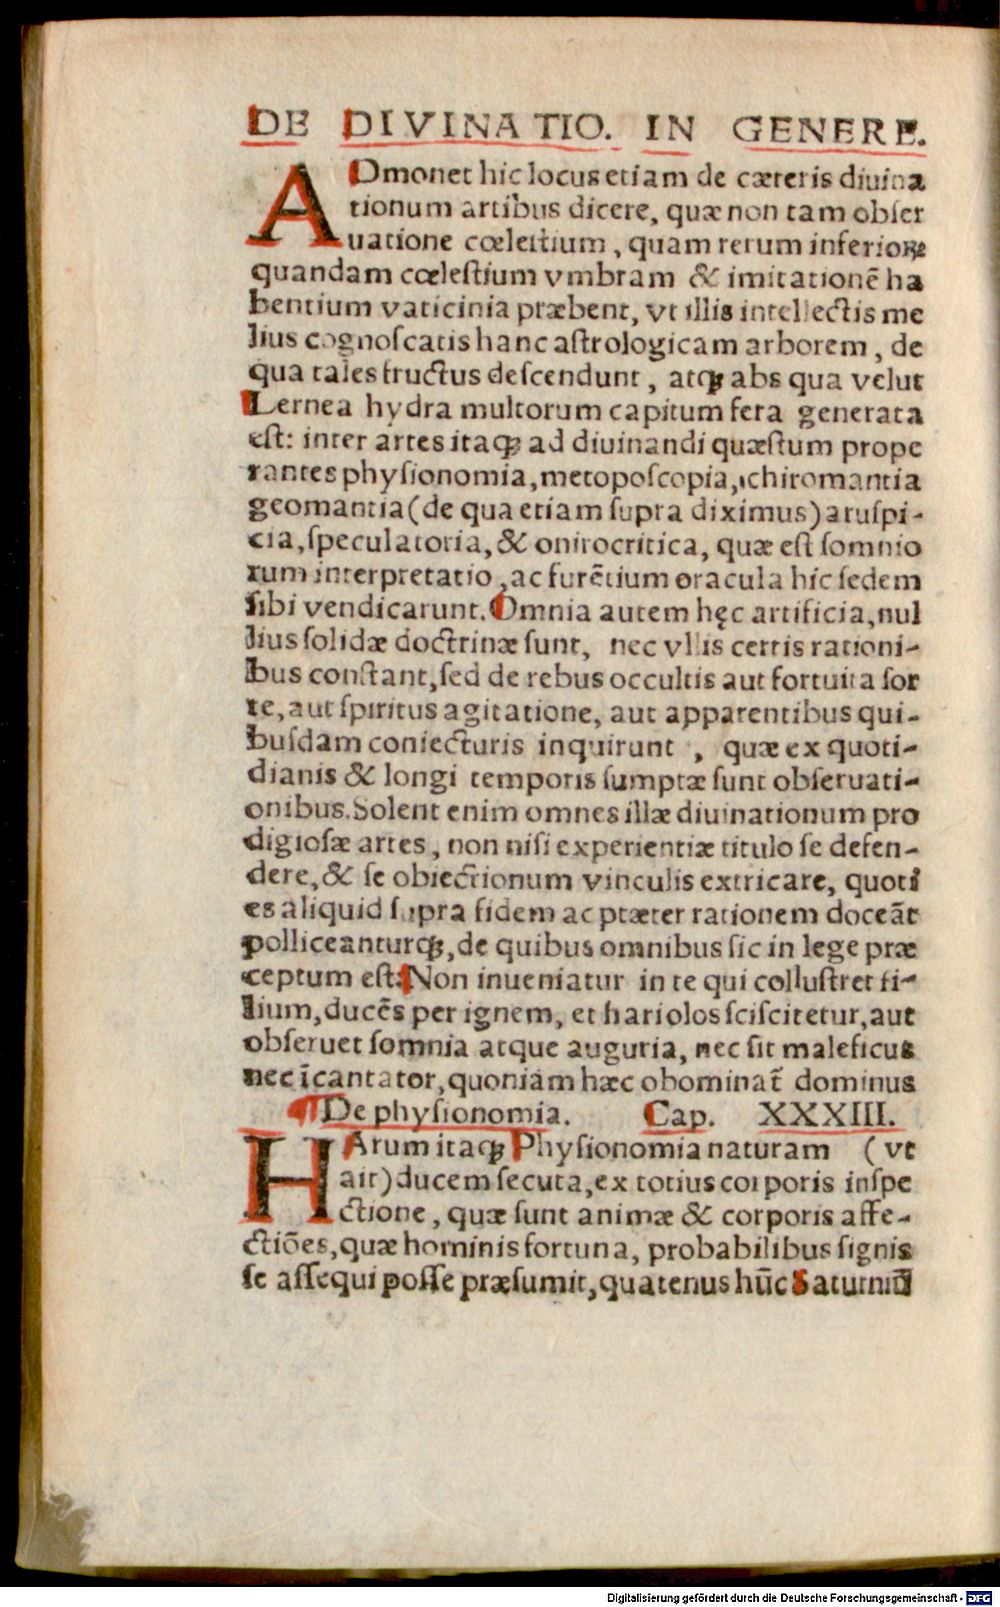 DE DIVINATIO. IN GENERE.
ADmonet hic locus etiam de cæteris diuina
tionum artibus dicere, quæ non tam obſer
uatione cœleſtium, quam rerum inferioꝝ
quandam cœleſtium vmbram & imitationē ha
bentium vaticinia præbent, vt illis intellectis me
lius cognoſcatis hanc aſtrologicam arborem, de
qua tales fructus deſcendunt, atqꝫ abs qua velut
Lernea hydra multorum capitum fera generata
eſt: inter artes itaqꝫ ad diuinandi quæſtum prope
rantes phyſionomia, metopoſcopia, chiromantia
geomantia (de qua etiam ſupra diximus) aruſpi-
cia, ſpeculatoria, & onirocritica, quæ eſt ſomnio
rum interpretatio, ac furētium oracula hic ſedem
ſibi vendicarunt. Omnia autem hęc artificia, nul
lius ſolidæ doctrinæ ſunt, nec vllis certis rationi-
bus conſtant, ſed de rebus occultis aut fortuita ſor
te, aut ſpiritus agitatione, aut apparentibus qui-
buſdam coniecturis inquirunt , quæ ex quoti-
dianis & longi temporis ſumptæ ſunt obſeruati-
onibus. Solent enim omnes illæ diuinationum pro
digioſæ artes, non niſi experientiæ titulo ſe defen-
dere, & ſe obiectionum vinculis extricare, quoti
es aliquid ſupra fidem ac præter rationem doceāt
polliceanturqꝫ, de quibus omnibus ſic in lege præ
ceptum eſt: Non inueniatur in te qui colluſtret fi-
lium, ducēs per ignem, et hariolos ſciſcitetur, aut
obſeruet ſomnia atque auguria, nec ſit maleficus
nec īcantator, quoniam hæc obominat̄ dominus
¶ De phyſionomia. Cap. XXXIII.
HArum itaqꝫ Phyſionomia naturam (vt
ait) ducem ſecuta, ex totius corporis inſpe
ctione, quæ ſunt animæ & corporis affe-
ctiōes, quæ hominis fortuna, probabilibus ſignis
ſe aſſequi poſſe præſumit, quatenus hūc Saturniū
Digitalisierung gefördert durch die Deutsche Forschungsgemeinschaft - DFG